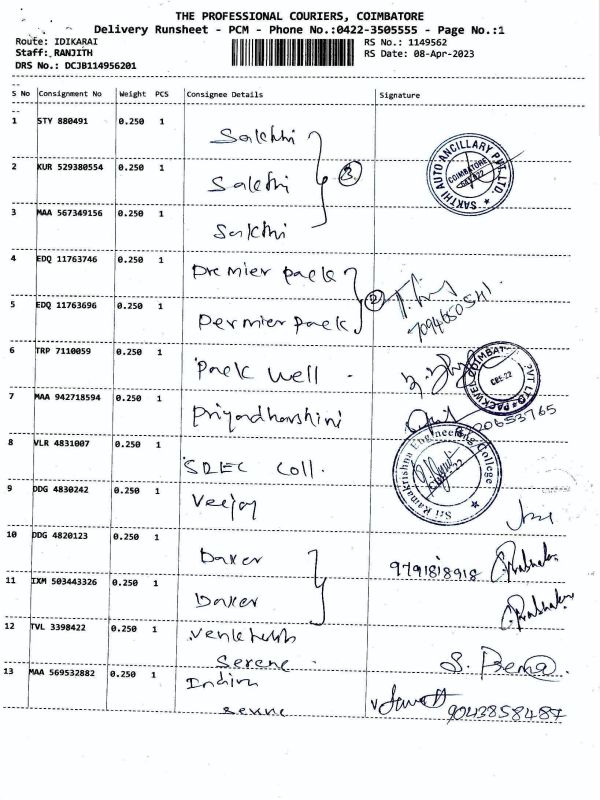 THE PROFESSIONAL COURIERS, COIMBATORE
Delivery Runsheet - PCM - Phone No.:0422-3505555 - Page No.:1
Route: IDIKARAI
RS No.: 1149562
Staff: RANJITH
RS Date: 08-Apr-2023
DRS No.: DCJB114956201
S No Consignment No Weight PCS Consignee Details Signature
1 STY 880491 0.250 1 Sakthi
2 KUR 529380554 0.250 1 Sakthi 3
SAKTHI AUTO ANCILLARY PVT. LTD.
COIMBATORE
3 MAA 567349156 0.250 1 Sakthi
4 EDQ 11763746 0.250 1 Premier pack
2
5 EDQ 11763696 0.250 1 Permier pack
7094650541
6 TRP 7110059 0.250 1 Pack well
7 MAA 942718594 0.250 1 Priyadharshini
20653765
8 VLR 4831007 0.250 1 SREC Coll.
Sri Ramakrishna Engineering College
9 DDG 4830242 0.250 1 Veejay
10 DDG 4820123 0.250 1 Daker
9791818918 Prabhakar
11 IXM 503443326 0.250 1 Daker
Prabhakar
12 TVL 3398422 0.250 1
Serene
S. Bema
13 MAA 569532882 0.250 1
9043858487